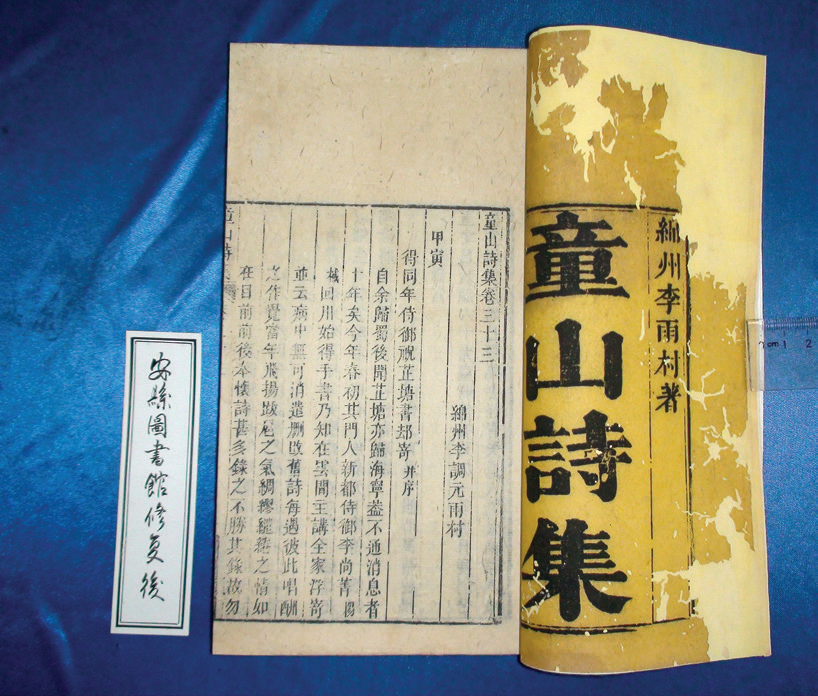 綿州李雨村著
童山詩集
童山詩集卷三十三
綿州李調元雨村
甲寅
得同年侍御祝芷塘書却寄 并序
自余歸蜀後聞芷塘亦歸海寧蓋不通消息者
十年矣今年春初其門人新都侍御李尚菁陽
棫回川始得手書乃知在雲間主講全家浮寄
並云病中無可消遣刪改舊詩每遇彼此唱酬
之作覺當年飛揚跋扈之氣綢繆繾綣之情如
在目前前後奉懷詩甚多錄之不勝其錄故勿
童山詩集
安縣圖書館修复後
cm 1 2